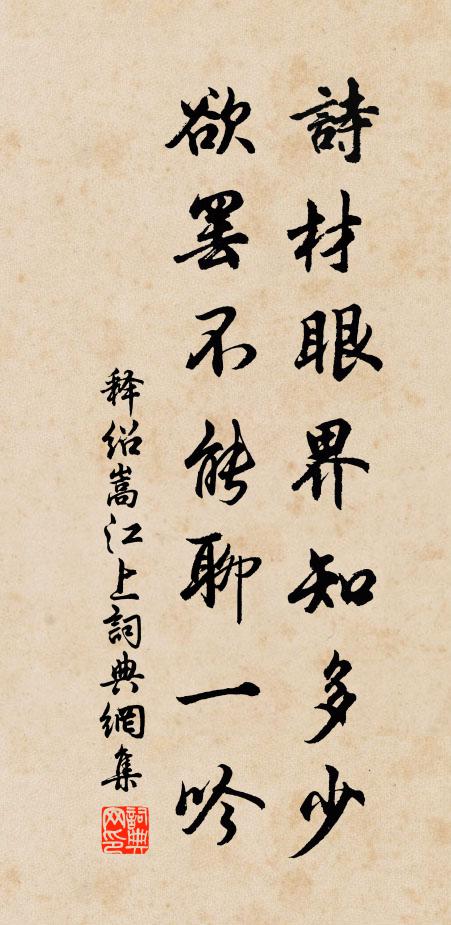 詩材眼界知多少
欲罢不能聊一吟
释绍嵩江上詞典網集
詞典网印